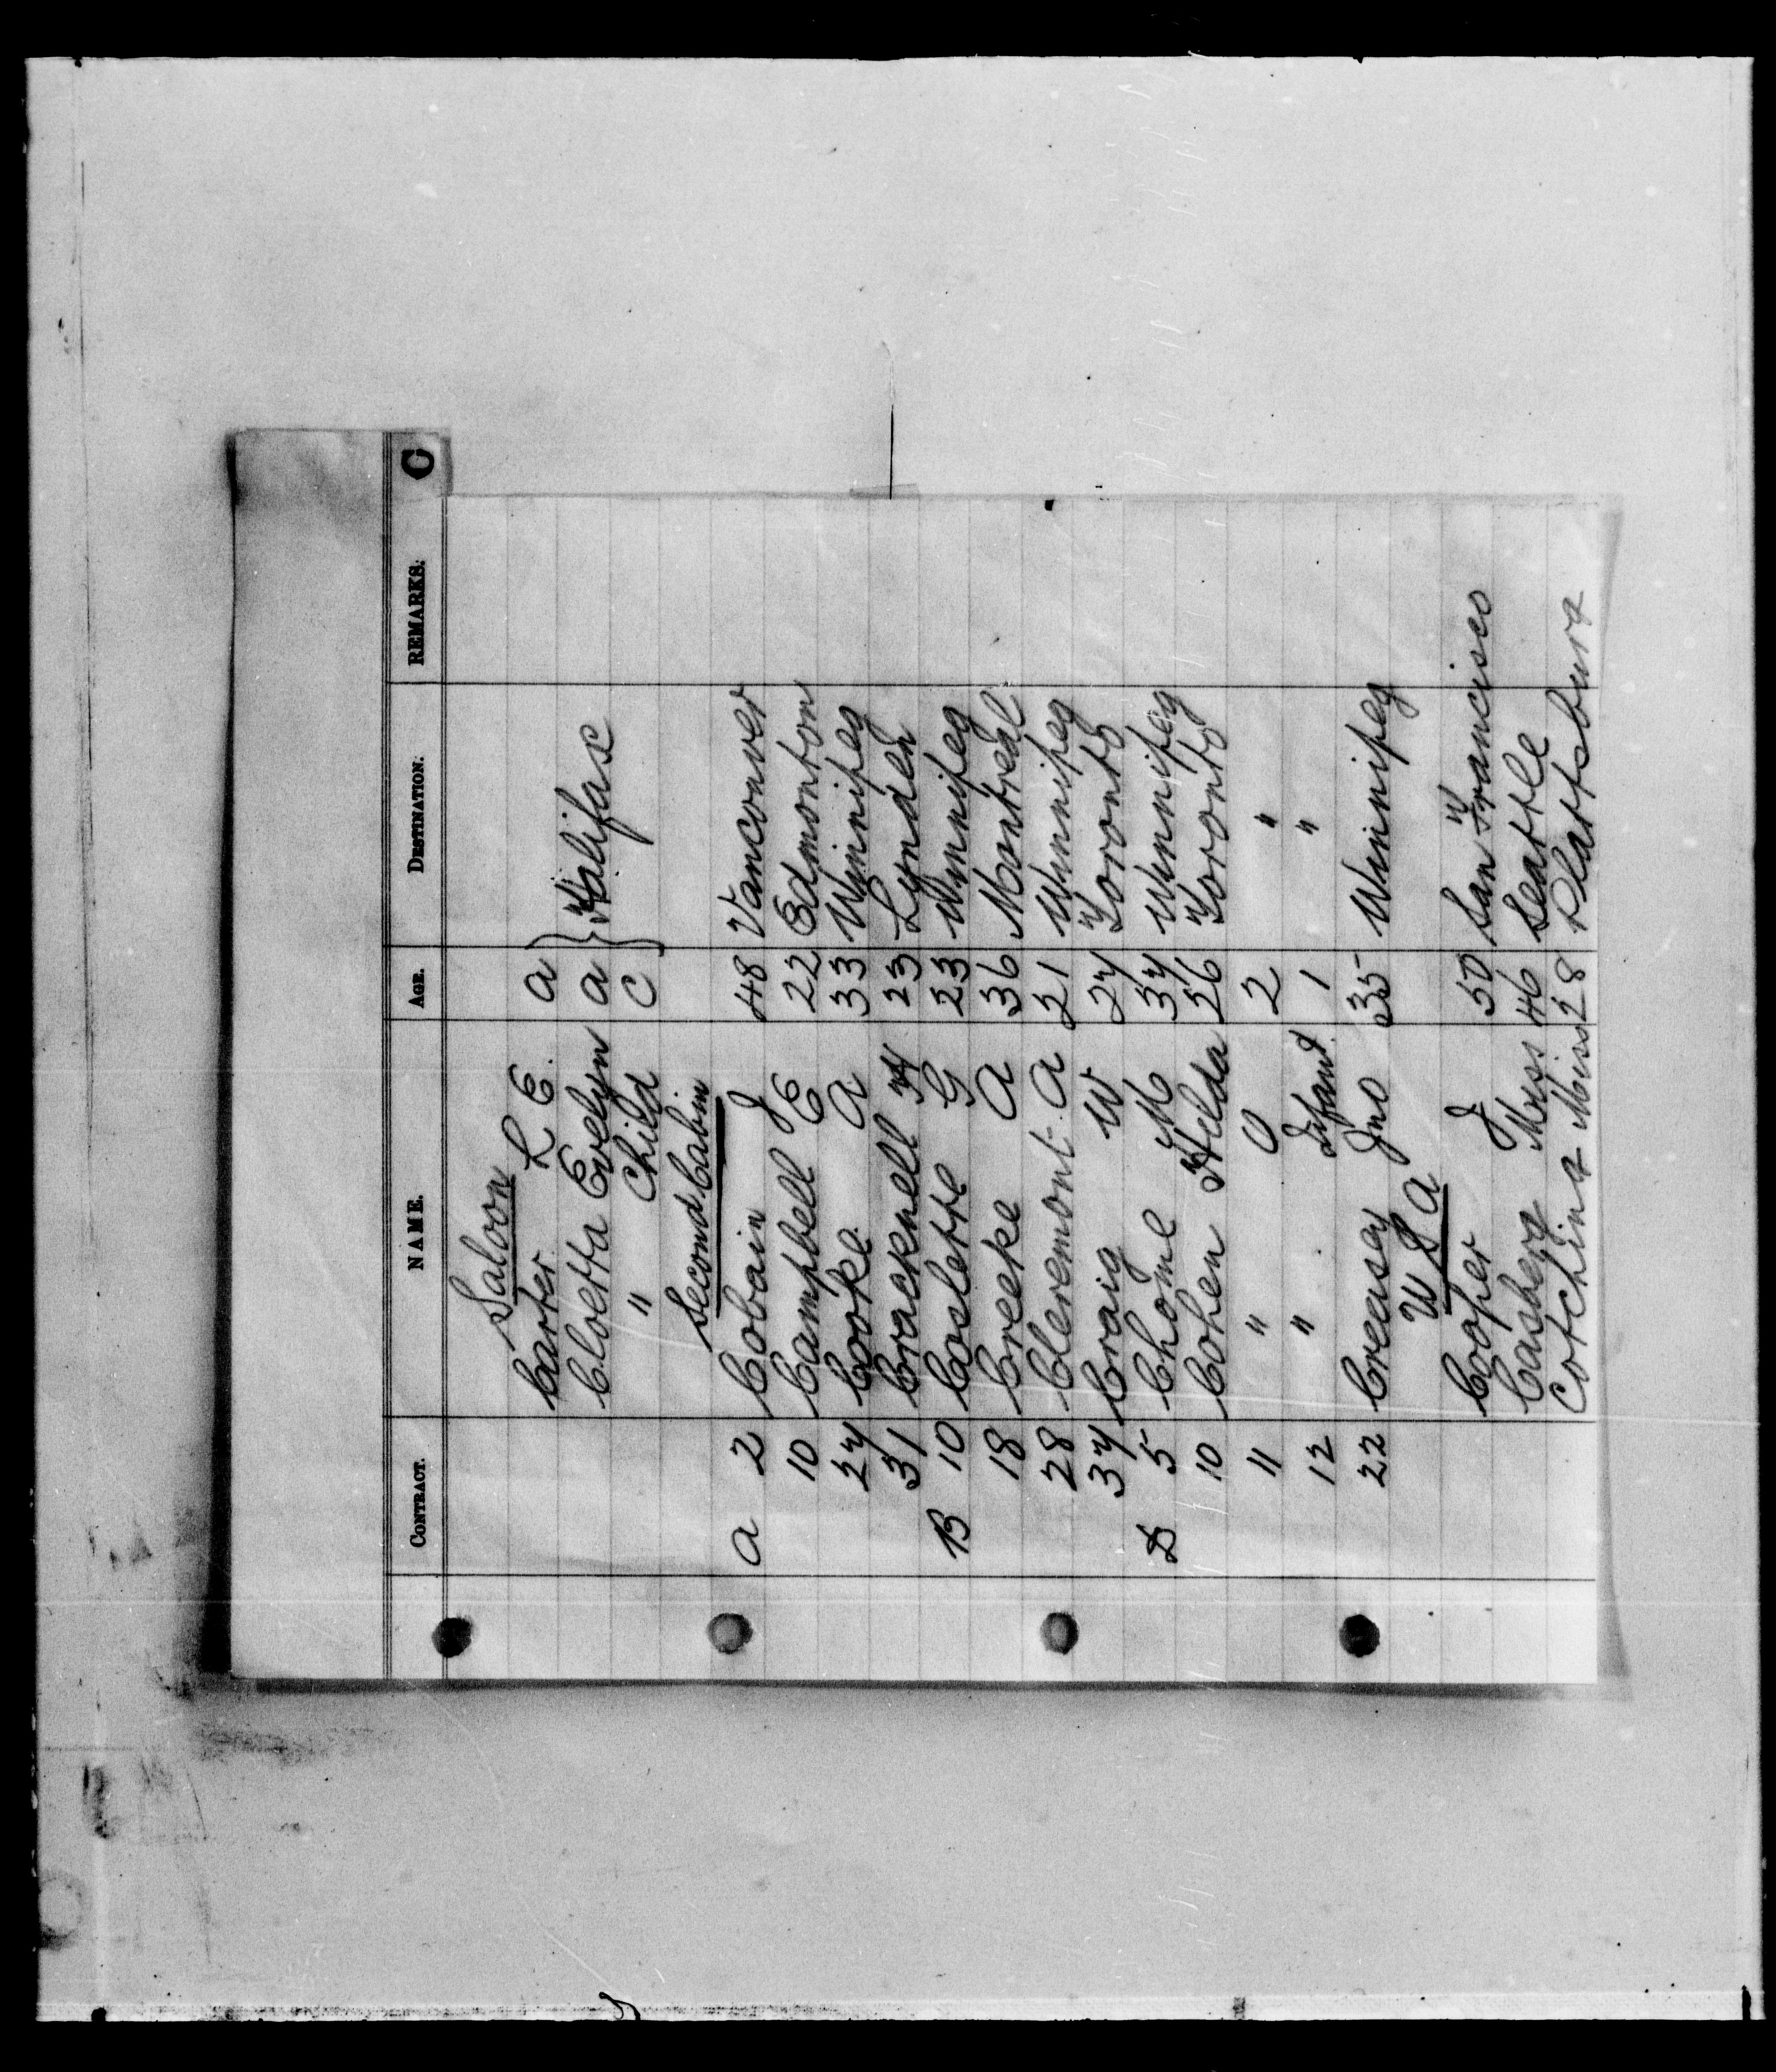 CONTRACT. NAME. AGE. DESTINATION. REMARKS. C
Saloon
Carter L E. a
Cloetta Evelyn a } Halifax
" Child C
Second Cabin
a 2 Cobain J 48 Vancouver
10 Campbell E 22 Edmonton
27 Cooke a 33 Winnipeg
31 Cracknell H 23 Lynden
B 10 Coslette G 23 Winnipeg
18 Creeke A 36 Montreal
28 Cleremont A 21 Winnipeg
37 Craig W 27 Toronto
D 5 Chome M 37 Winnipeg
10 Cohen Hilda 26 Toronto
11 " O 2 "
12 " Infant 1 "
22 Creasey Jno 35 Winnipeg
U S A
Cooper J 50 San Francisco
Casberg Miss 46 Seattle
Cotching Miss 28 Plattsburg